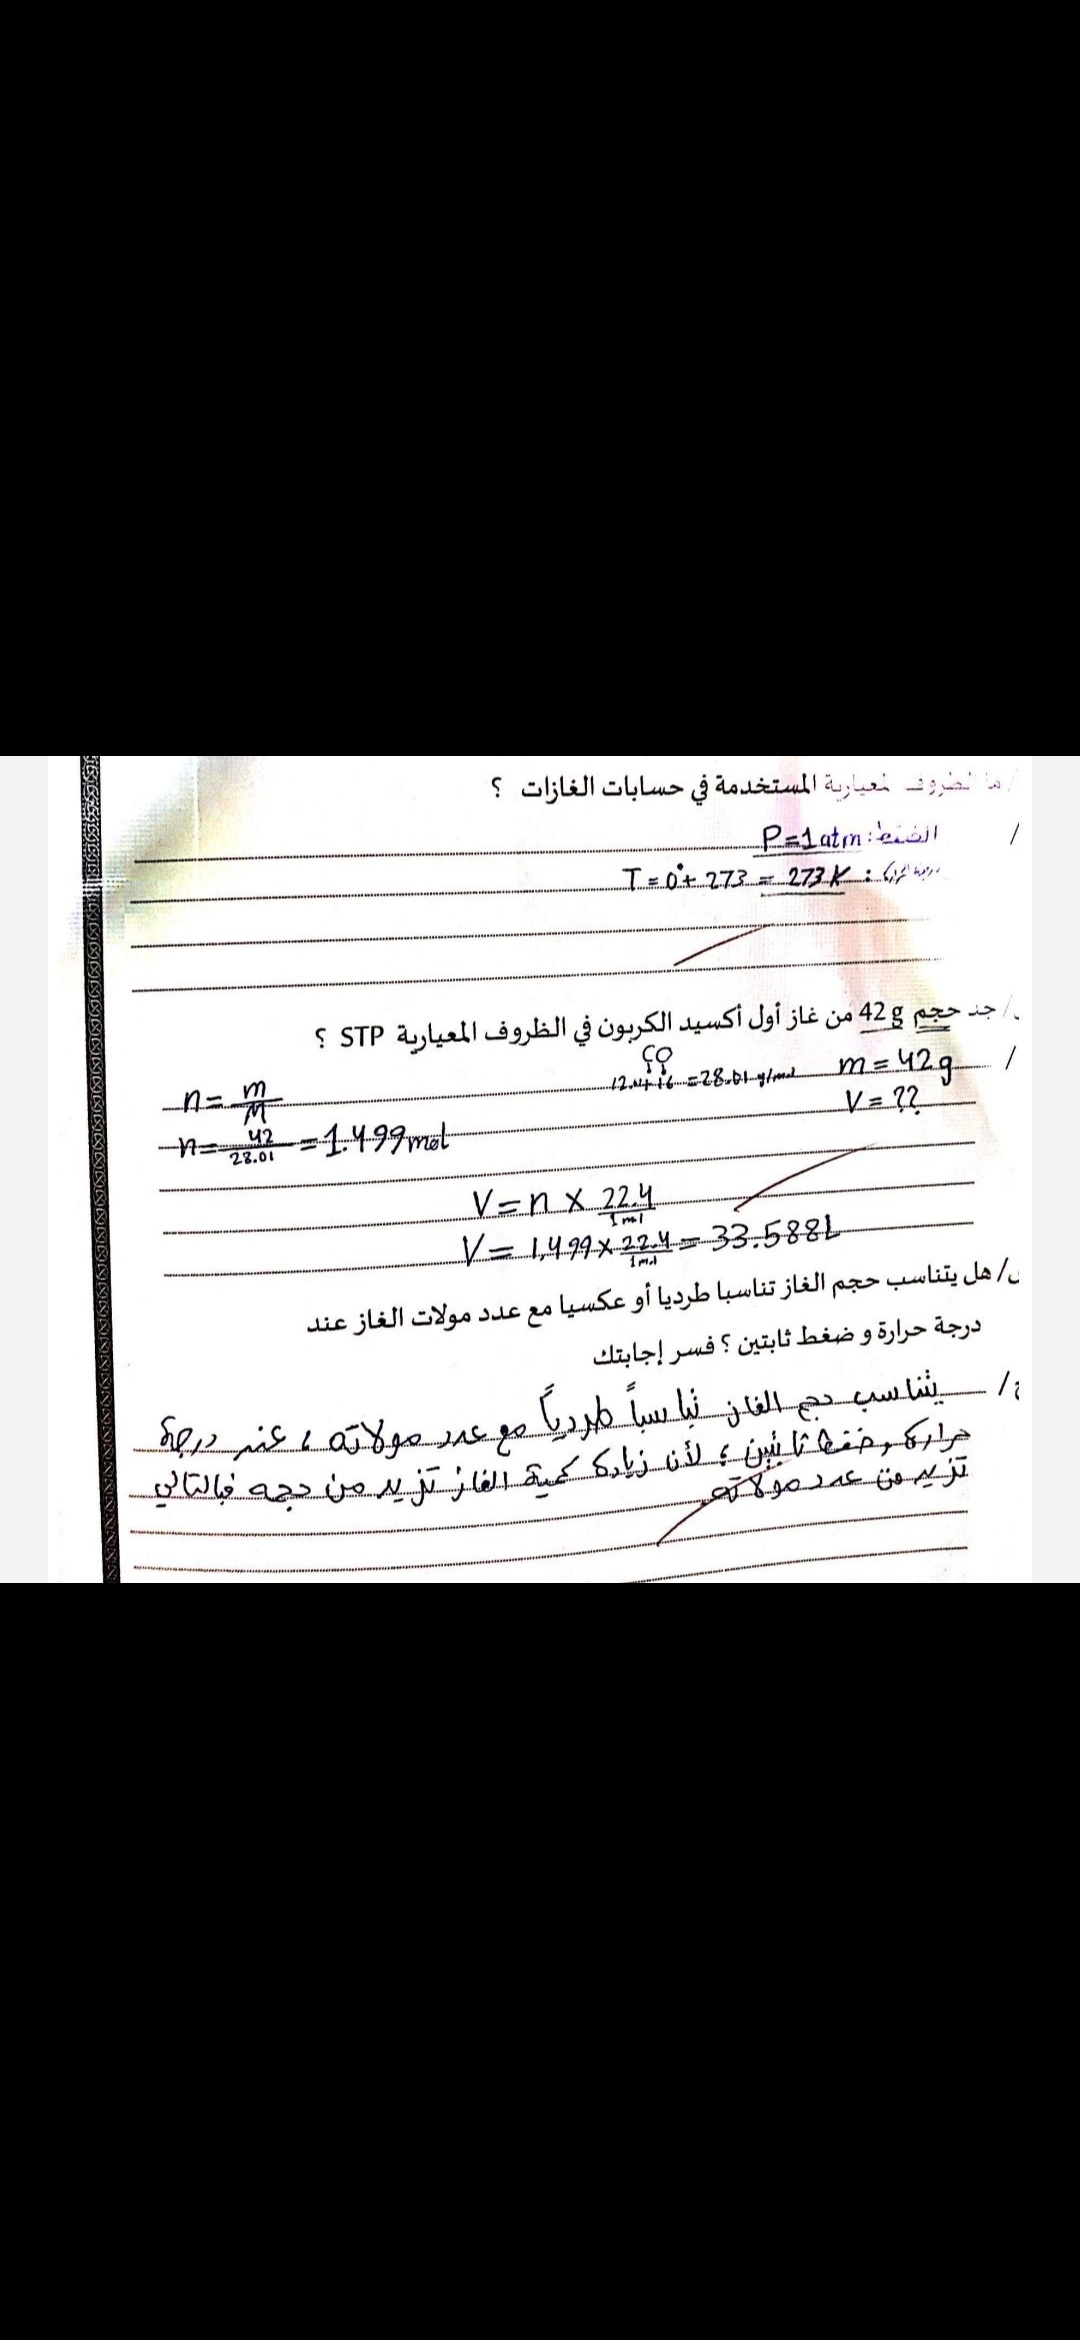 ما الظروف المعيارية المستخدمة في حسابات الغازات ؟
الضغط: P=1 atm
درجة الحرارة : T = 0° + 273 = 273 K
جد حجم 42 g من غاز أول أكسيد الكربون في الظروف المعيارية STP ؟
m = 42 g
CO
12.01+16 = 28.01 g/mol
V = ??
n = m/M
n = 42/28.01 = 1.499 mol
V = n × 22.4/1mol
V = 1.499 × 22.4/1mol = 33.588L
س/ هل يتناسب حجم الغاز تناسبا طرديا أو عكسيا مع عدد مولات الغاز عند
درجة حرارة و ضغط ثابتين ؟ فسر إجابتك
ج/ يتناسب حجم الغاز تناسباً طردياً مع عدد مولاته ، عند درجة
حرارة وضغط ثابتين ؛ لأن زيادة كمية الغاز تزيد من حجمه فبالتالي
تزيد من عدد مولاته